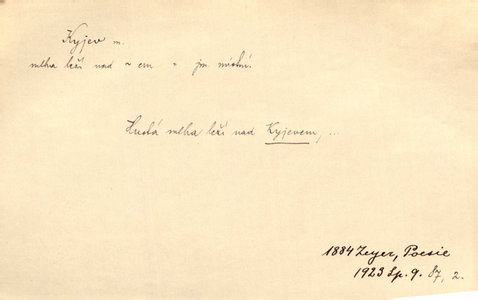 Kyjev m.
mlha leží nad ~ em ~ jm. místní.
Hustá mlha leží nad Kyjevem, ...
1884 Zeyer, Poesie
1923 Sp. 9. 87, 2.